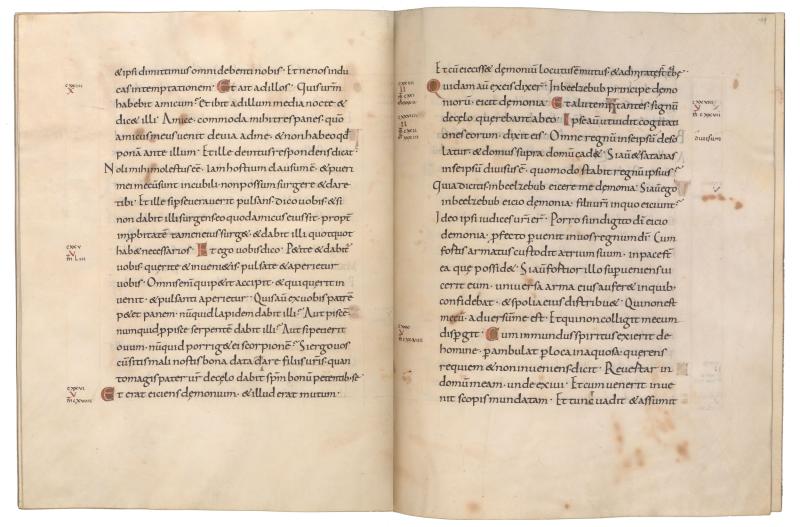 & ipsi dimittimus omni debenti nobis · Et ne nos indu
cas in temptationem · Et ait ad illos · Quis urm̄
habebit amicum · Et ibit ad illum media nocte · &
dic& illi · Amice · commoda mihi tres panes · quō
amicus meus uenit de uia ad me · & non habeo qđ
ponā ante illum · Et ille deintus respondens dicat ·
Noli mihi molestus ēē · Iam hostium clausum ē · & pueri
mei mecū sunt in cubili · non possum surgere & dare
tibi · Et ille si perseuerit pulsans · dico uobis · & si
non dabit illi surgens eo quod amicus eius sit · propt̄
improbitatē tamen eius surg& · & dabit illi quotquot
hab& necessarios · Et ego uobis dico · P&ite & dabit̄
uobis · querite & inueni&is · pulsate & aperietur
uobis · Omnis enim qui p&it accipit · & qui querit in
uenit · & pulsanti aperietur · Quis aūt ex uobis patrē
p&et panem · nūquid lapidem dabit illi · Aut piscē ·
numquid p pisce serpentē dabit illi · Aut si petierit
ouum · nūquid porrig& ei scorpionē · Si ergo uos
cū sitis mali nostis bona data dare filiis uris · quan
to magis pater ur̄ de celo dabit spm̄ bonū petentibus se
Et erat eiciens demonium · & illud erat mutum ·
cxxiiii
x
cxxv
v
cxxvi
v
Et cū eiecisset demoniū locutus ē mutus · & admirate st̄ turbe ·
Quidam aū ex eis dixer̄ · In beelzebub principe demo
nioru eicit demonia · Et alii temptantes signū
de celo querebant ab eo · Ipse aū ut uidit cogitati
ones eorum · dixit eis · Omne regnū in se ipsū deso
latur · & domus supra domū cad& · Si aū & satanas
in se ipsū diuisus ē · quomodo stabit regnū ipsius ·
Quia dicitis in beelzebub eicere me demonia · Si aū ego
in beelzebub eicio demonia · filii uri in quo eiciunt ·
Ideo ipsi iudices uri er̄ · Porro si in digito dī eicio
demonia · profecto puenit in uos regnum dī · Cum
fortis armatus custodit atrium suum · in pace st̄
ea que possid& · Si aū fortior illo superueniens ui
cerit eum · uniuersa arma eius aufer& in quib ·
confidebat · & spolia eius distribu& · Qui non est
mecū · aduersū me est · Et qui non colligit mecum
dispgit · Cum immundus spiritus exierit de
homine · pambulat p loca inaquosa · querens
requiem & non inueniens dicit · Reuertar in
domū meam · unde exiui · Et cum uenerit inue
nit scopis mundatam · Et tunc uadit & assumit
diuisum